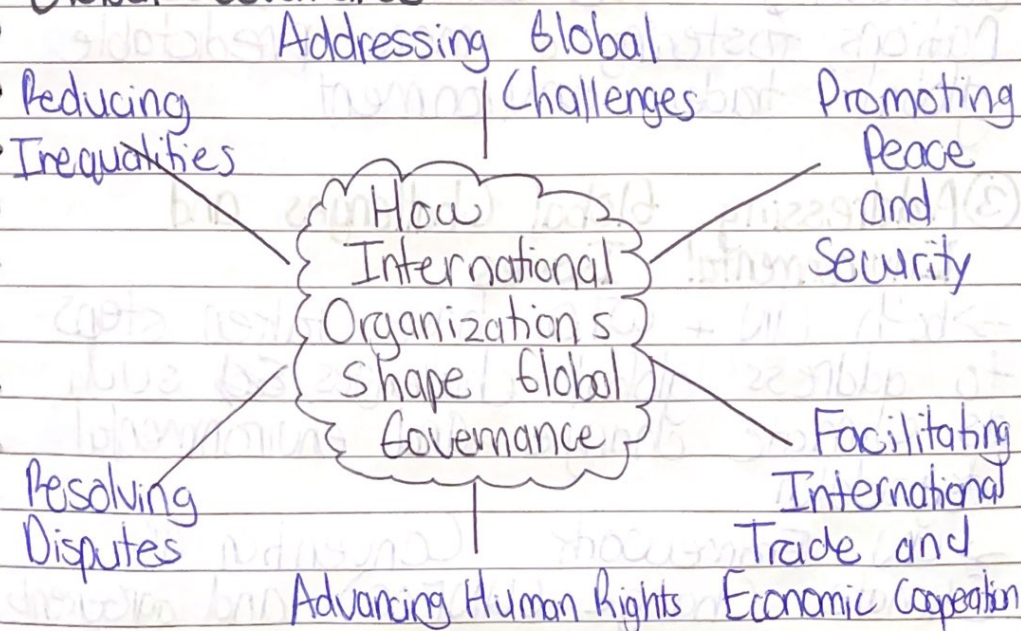 Addressing Global
Challenges
Reducing
Inequalities
Promoting
Peace
and
Security
How
International
Organizations
shape Global
Governance
Resolving
Disputes
Facilitating
International
Trade and
Economic Cooperation
Advancing Human Rights